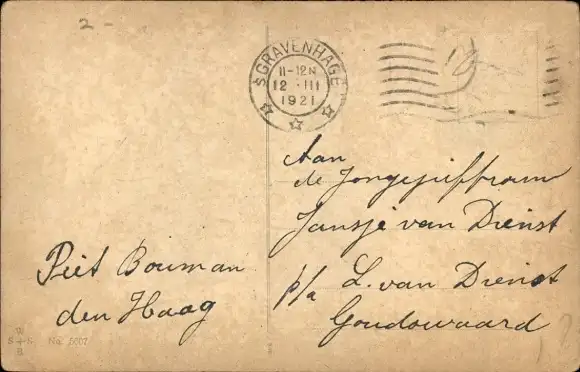 2 -
'SGRAVENHAGE
11-12N
12 III
1921
Aan
de Jongejuffrouw
Jansje van Dienst
p/a L. van Dienst
Goudswaard
Piet Bouman
den Haag
S + S
B
No. 5002